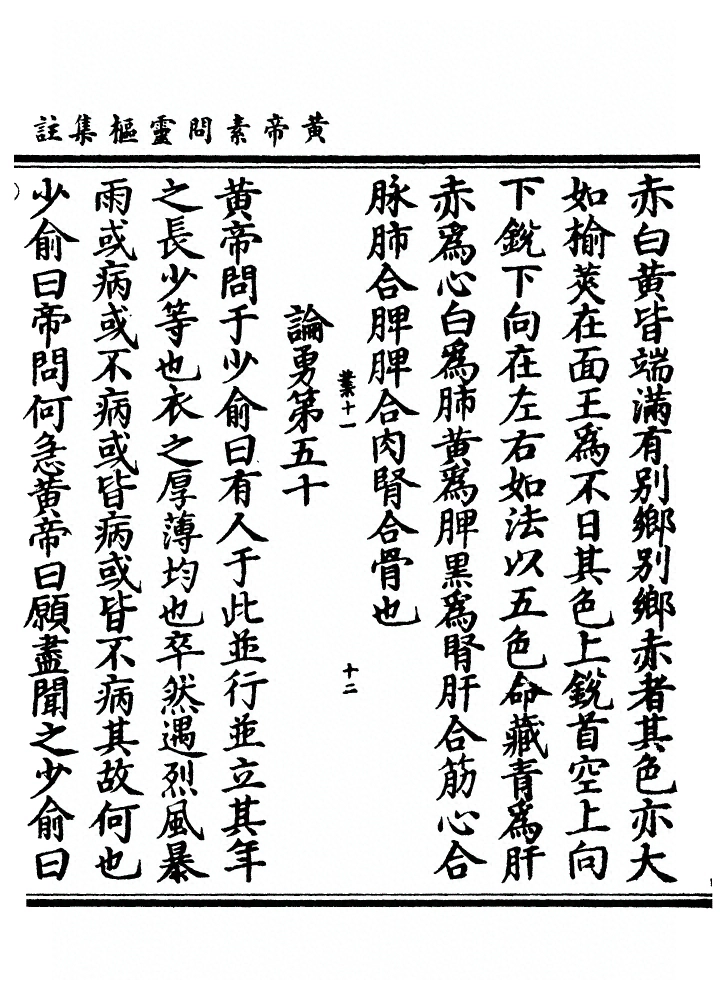 黃帝素問靈樞集註
赤白黃皆端滿有別鄉別鄉赤者其色亦大
如榆莢在面王為不日其色上銳首空上向
下銳下向在左右如法以五色命藏青為肝
赤為心白為肺黃為脾黑為腎肝合筋心合
脉肺合脾脾合肉腎合骨也
業十一
十二
論勇第五十
黃帝問于少俞曰有人于此並行並立其年
之長少等也衣之厚薄均也卒然遇烈風暴
雨或病或不病或皆病或皆不病其故何也
少俞曰帝問何急黃帝曰願盡聞之少俞曰